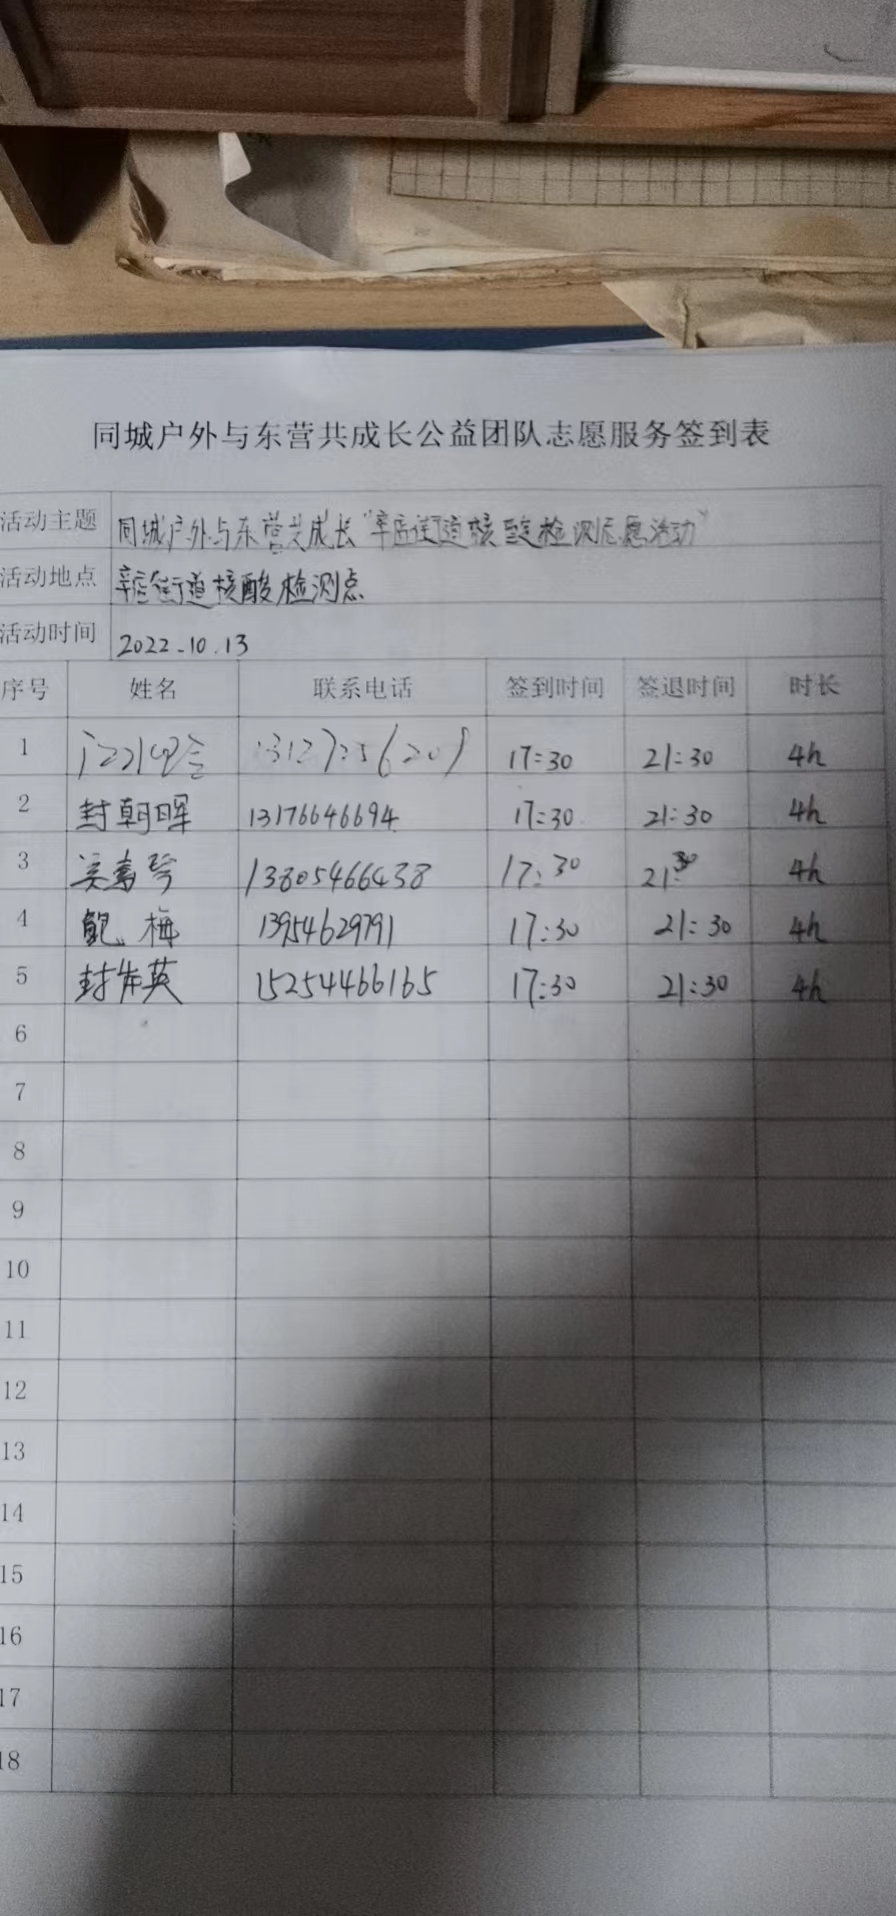 同城户外与东营共成长公益团队志愿服务签到表
活动主题 同城户外与东营共成长"辛店街道核酸检测志愿活动"
活动地点 辛店街道核酸检测点
活动时间 2022.10.13
序号 姓名 联系电话 签到时间 签退时间 时长
1 17:30 21:30 4h
2 封朝晖 13176646694 17:30 21:30 4h
3 13805466438 17:30 21:30 4h
4 鲍梅 13954629791 17:30 21:30 4h
5 15254466165 17:30 21:30 4h
6
7
8
9
10
11
12
13
14
15
16
17
18